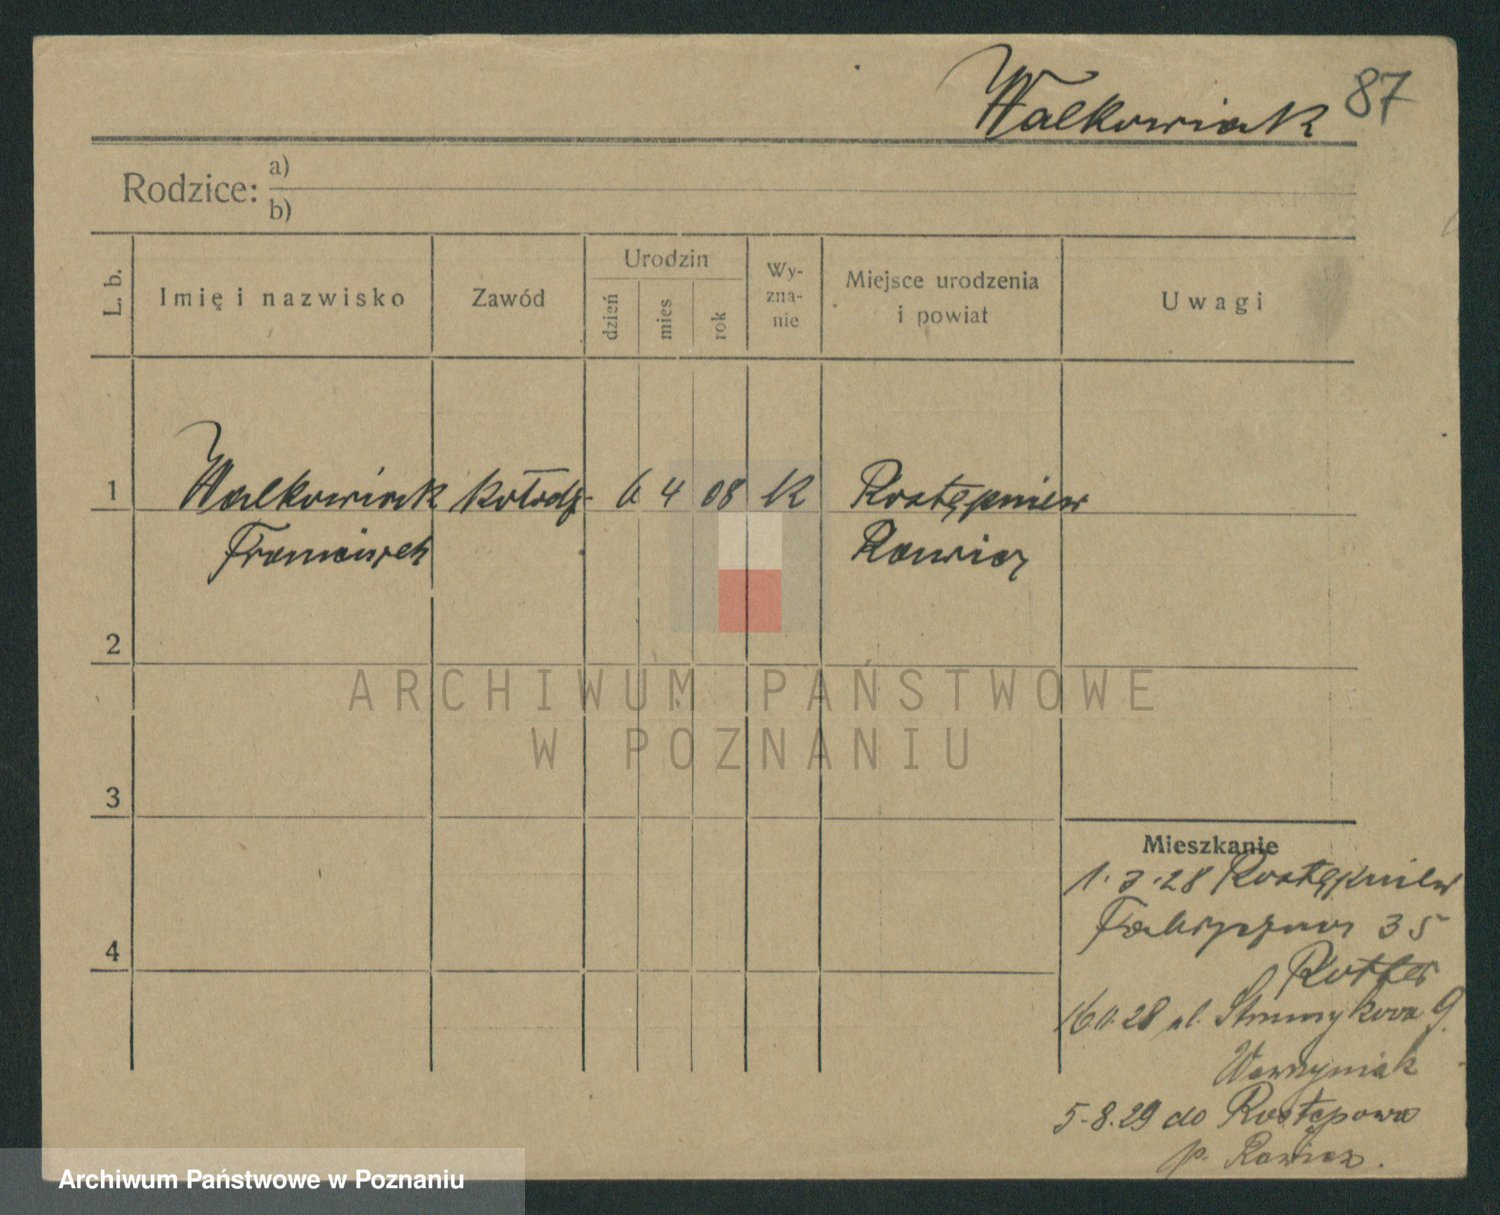 Walkowiak 87
Rodzice: a)
b)
L. b.
Imię i nazwisko
Zawód
Urodzin
dzień
mies
rok
Wy-
zna-
nie
Miejsce urodzenia
i powiat
Uwagi
1 Walkowiak kołodz- 6 4 08 K Rostępniew
Franciszek Rawicz
2
3
4
Mieszkanie
1.3.28 Rostępniew
Fabryczna 35
16.11.28 ul. Strumykowa 9
Wawrzyniak
5.8.29 do Rostępowa
p. Rawicz.
ARCHIWUM PAŃSTWOWE
W POZNANIU
Archiwum Państwowe w Poznaniu